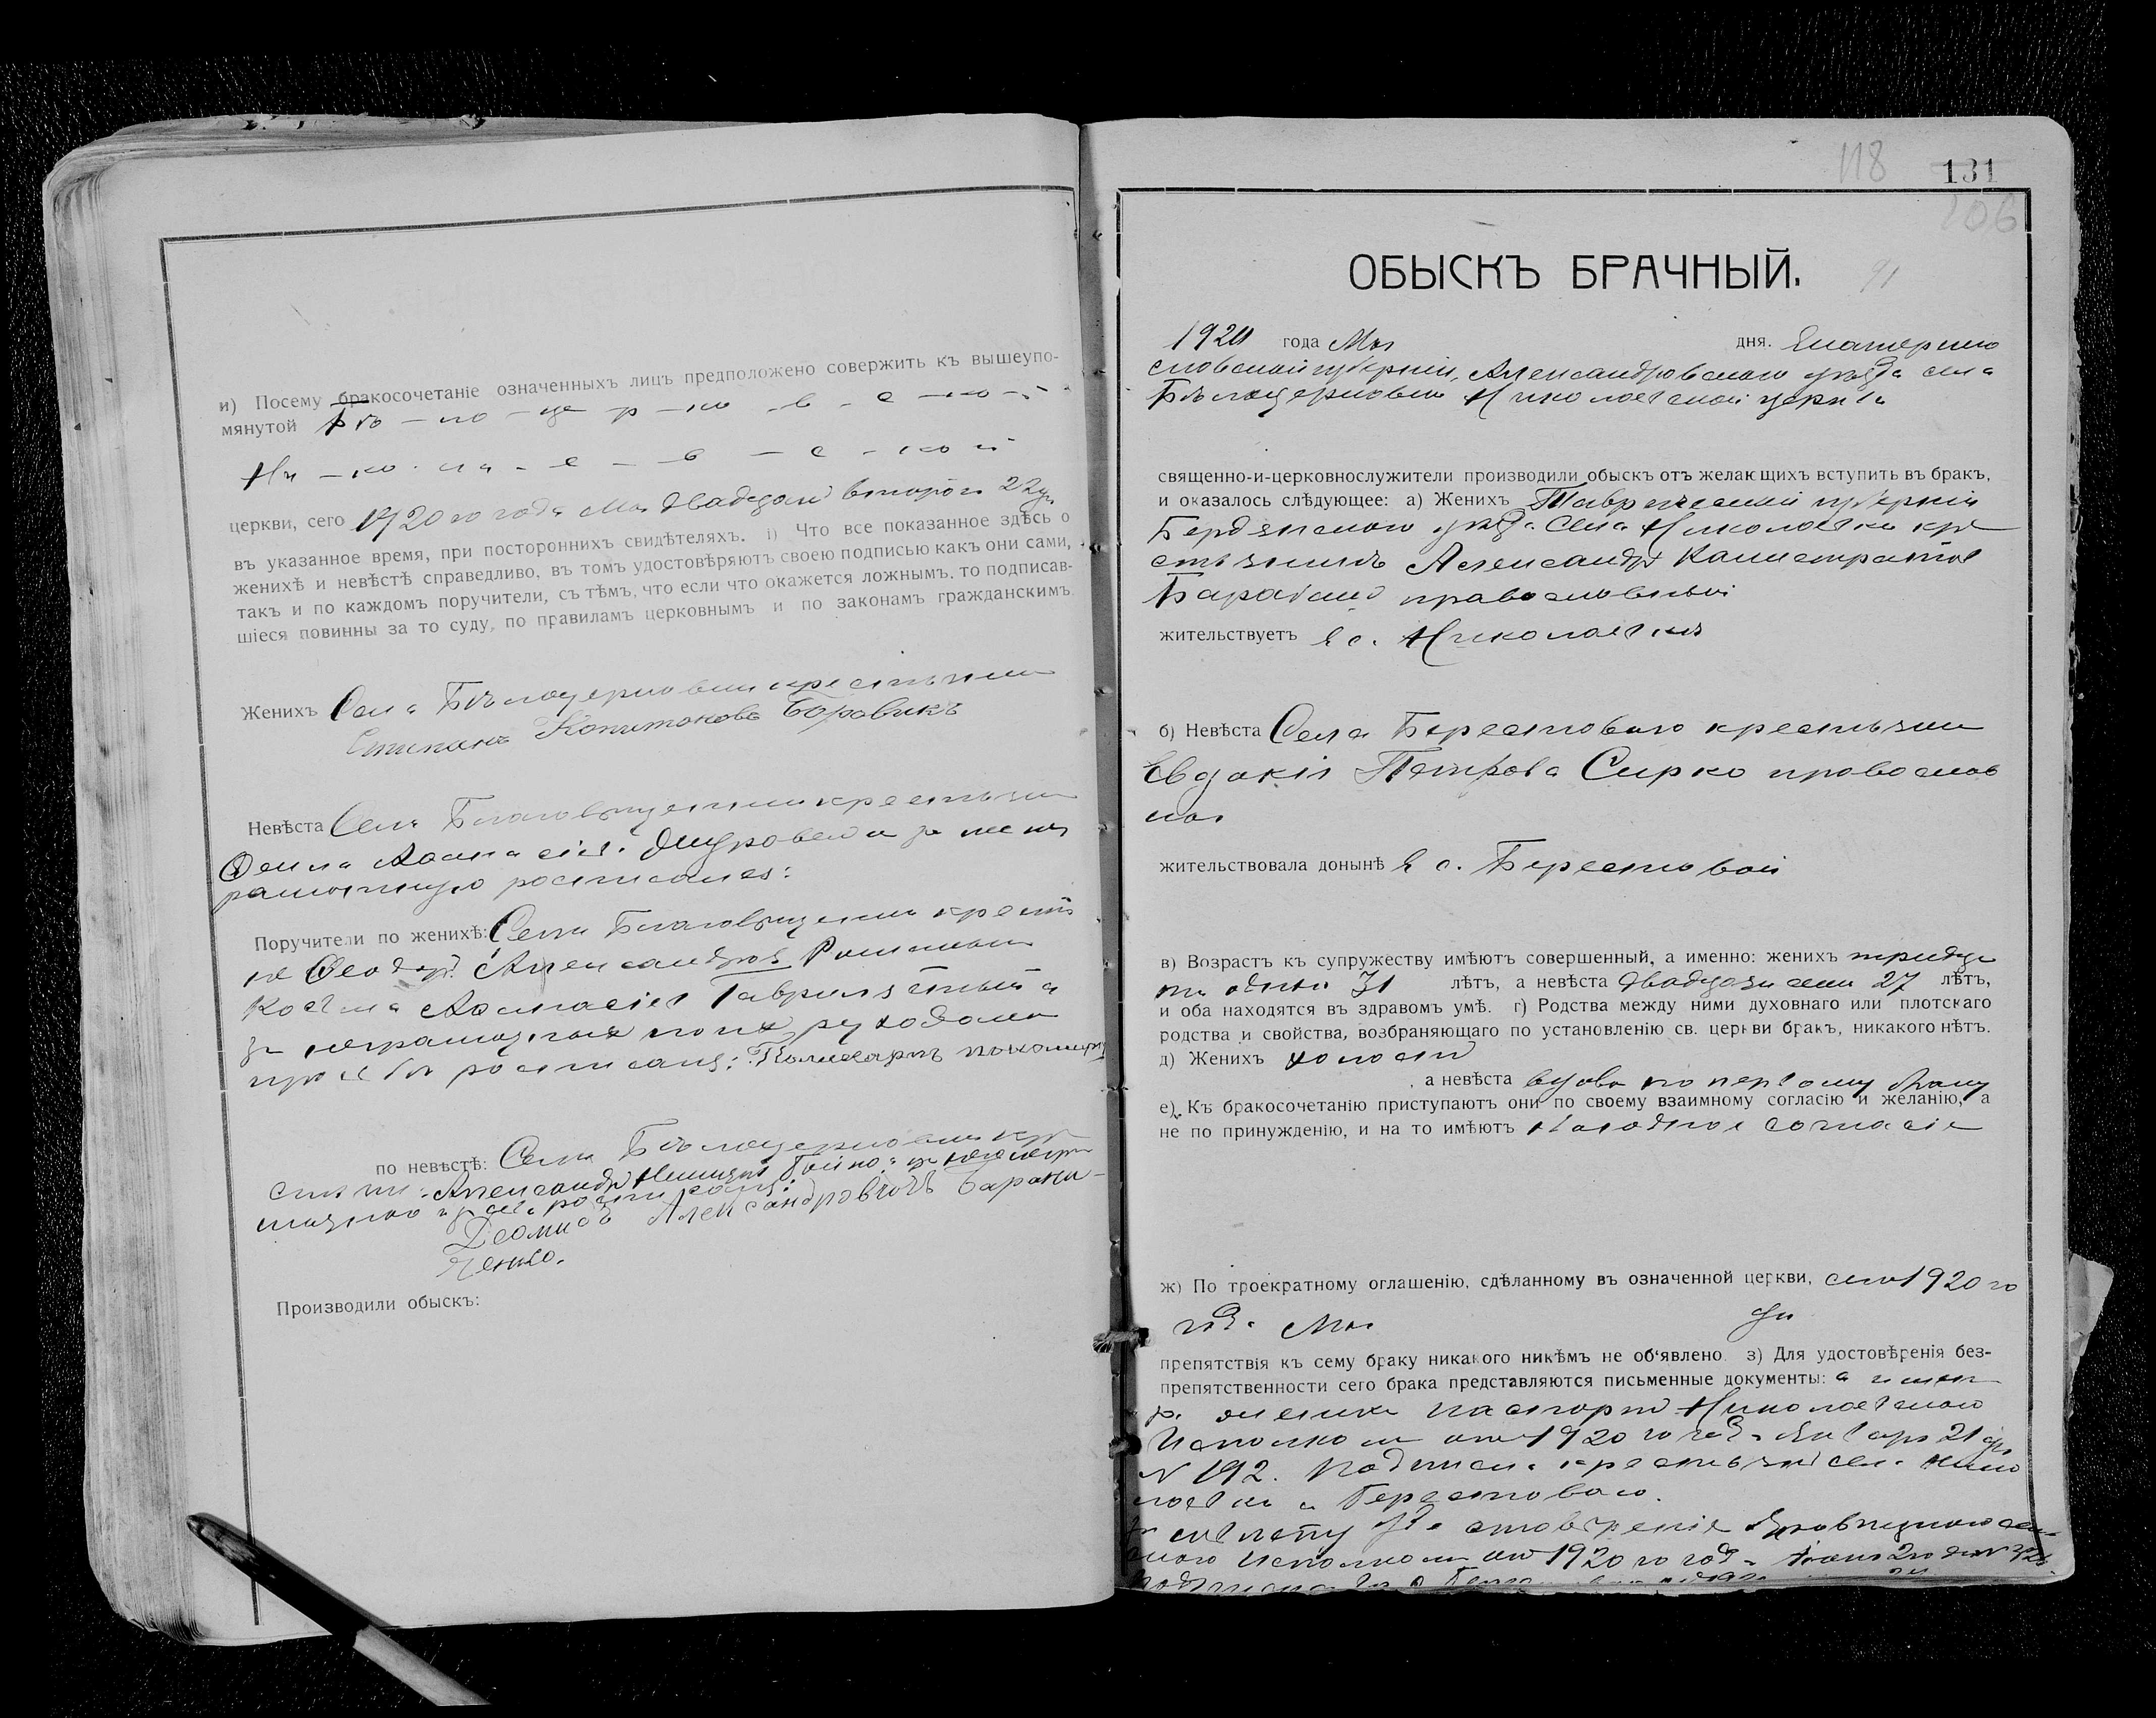 и) Посему бракосочетаніе означенныхъ лицъ предположено совержить къ вышеупо-
мянутой Бѣ-ло-це-р-ко-в-с-ко-й
Ни-ко-ла-е-в-с-ко й
церкви, сего 1920 го года Мая двадцать второго 22 дня
въ указанное время, при постороннихъ свидѣтеляхъ. і) Что все показанное здѣсь о
женихѣ и невѣстѣ справедливо, въ томъ удостовѣряютъ своею подписью какъ они сами,
такъ и по каждомъ поручители, съ тѣмъ, что если что окажется ложнымъ, то подписав-
шіеся повинны за то суду, по правиламъ церковнымъ и по законамъ гражданскимъ.
Женихъ Села Бѣлоцерковки крестьянин
Степанъ Боровикъ
Невѣста Села Благовѣщенки крестьян
за не
росписался:
Поручители по женихѣ: Села Благовѣщенки крест
не Ѳеодоръ Александров
Косьма Аѳанасіев
за неграмотных по их рукоданно
просьбѣ росписался: Поликарпъ
по невѣстѣ: Села Бѣлоцерковки кре
стьяни: Александръ Бойко: за него негра
мотного росписался:
Леонидъ Александровичъ Барани-
ченко.
Производили обыскъ:
118 131
206
ОБЫСКЪ БРАЧНЫЙ. 91
1920 года Мая дня. Екатерино
славской губерніи, Александровскаго уѣзда села
Бѣлоцерковки Николаевской церкви
священно-и-церковнослужители производили обыскъ отъ желающихъ вступить въ бракъ,
и оказалось слѣдующее: а) Женихъ Таврической губерніи
Бердянскаго уѣзда села Николаевки кре
стьянинъ Александръ Калистратов
Барабаш православный
жительствуетъ в с. Николаевке
б) Невѣста Села Берестоваго крестьянки
Евдокія Петрова Сирко православ
ная
жительствовала донынѣ в с. Берестовой
в) Возрастъ къ супружеству имѣютъ совершенный, а именно: женихъ тридца
ти одного 31 лѣтъ, а невѣста двадцати семи 27 лѣтъ,
и оба находятся въ здравомъ умѣ. г) Родства между ними духовнаго или плотскаго
родства и свойства, возбраняющаго по установленію св. церкви бракъ, никакого нѣтъ.
д) Женихъ холост
а невѣста вдова по первому браку
е) Къ бракосочетанію приступаютъ они по своему взаимному согласію и желанію, а
не по принужденію, и на то имѣютъ согласіе
ж) По троекратному оглашенію, сдѣланному въ означенной церкви, сего 1920 го
года Мая дня
препятствія къ сему браку никакого никѣмъ не об'явлено. з) Для удостовѣренія без-
препятственности сего брака представляются письменные документы: а имен
но жениха паспорт Николаевскаго
Исполкома от 1920 го года Января 21 дня
N 192. крестьян села Нико
лаевки и Берестоваго.
невѣсту удостовѣренія
скаго Исполкома от 1920 го года